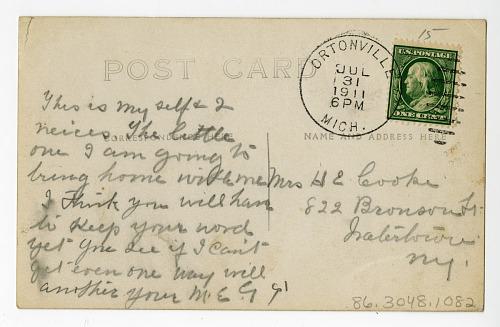 15
U.S. POSTAGE
ONE CENT
ORTONVILLE
JUL
31
1911
6PM
MICH.
POST CARD
CORRESPONDENCE HERE
NAME AND ADDRESS HERE
This is my self & 2
neices. The little
one I am going to
bring home with me
I think you will have
to keep your word
yet you see if I can't
get even one way will
another your M.E.G
Mrs H E Cooke
822 Bronson St.
Watertown
NY.
86.3048.1082